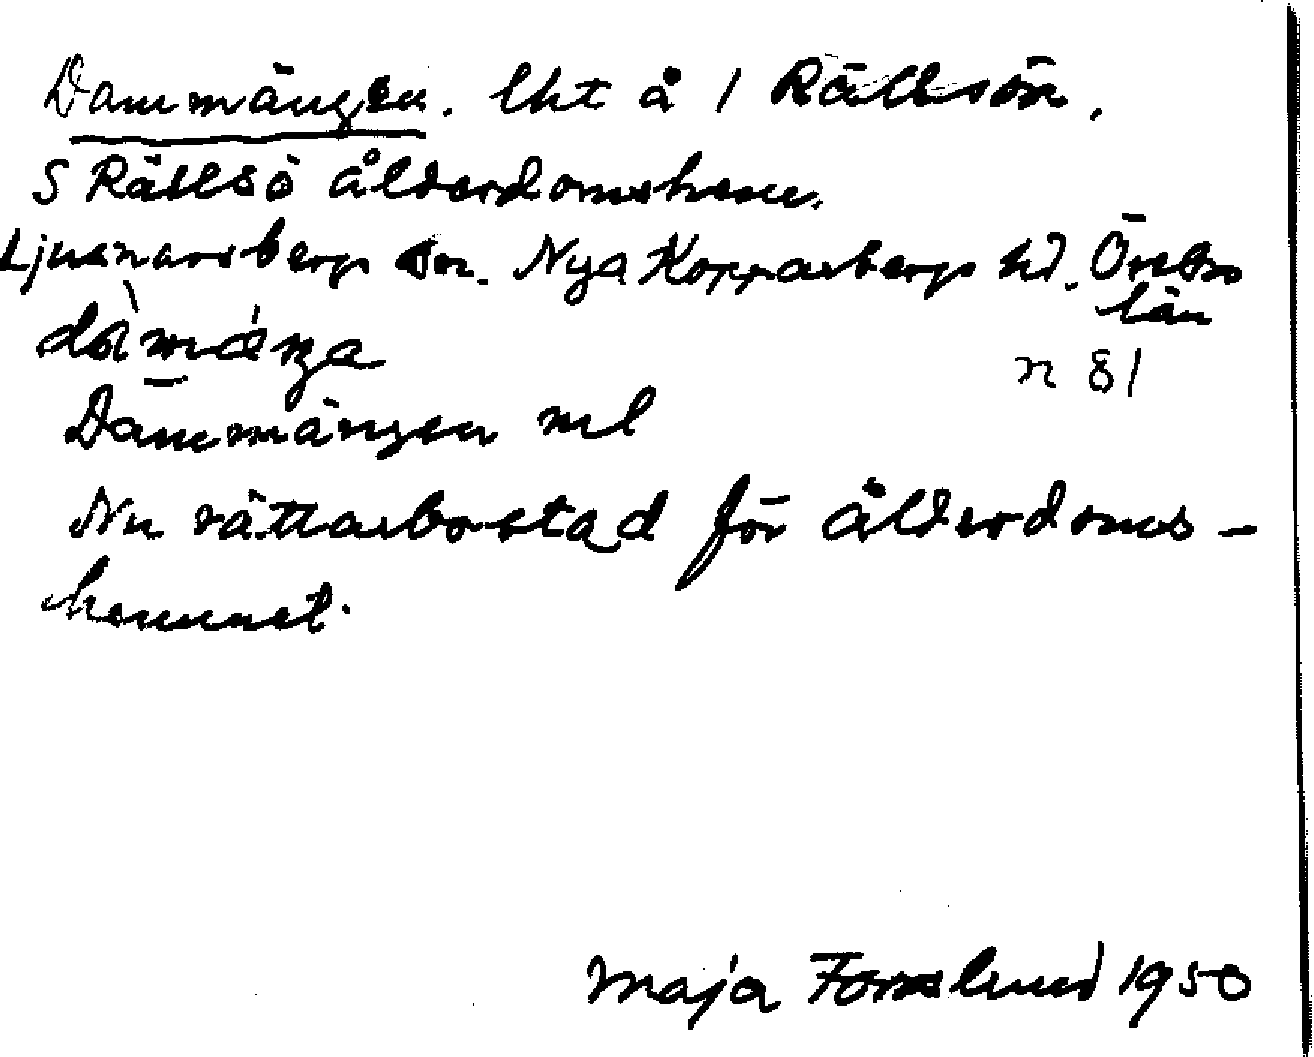 Dammängen. lht å 1 Rällsön.
S Rällsö ålderdomshem.
Ljusnarsbergs sn. Nya Kopparbergs hd. Örebro
län
dàmáŋa
n 81
Dammängen ml
Nu rättarbostad för ålderdoms-
hemmet.
Maja Forslund 1950